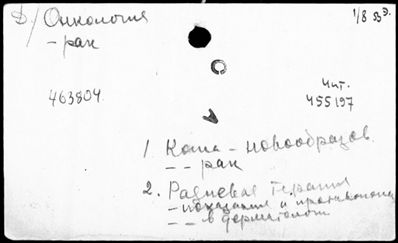 Д/ Онкология
1/8 53 э.
- рак
463804.
Чит.
455197
1. Кожа - новообразов.
- - рак
2. Радиевая терапия
- показания и противопоказ
- - в дерматологии